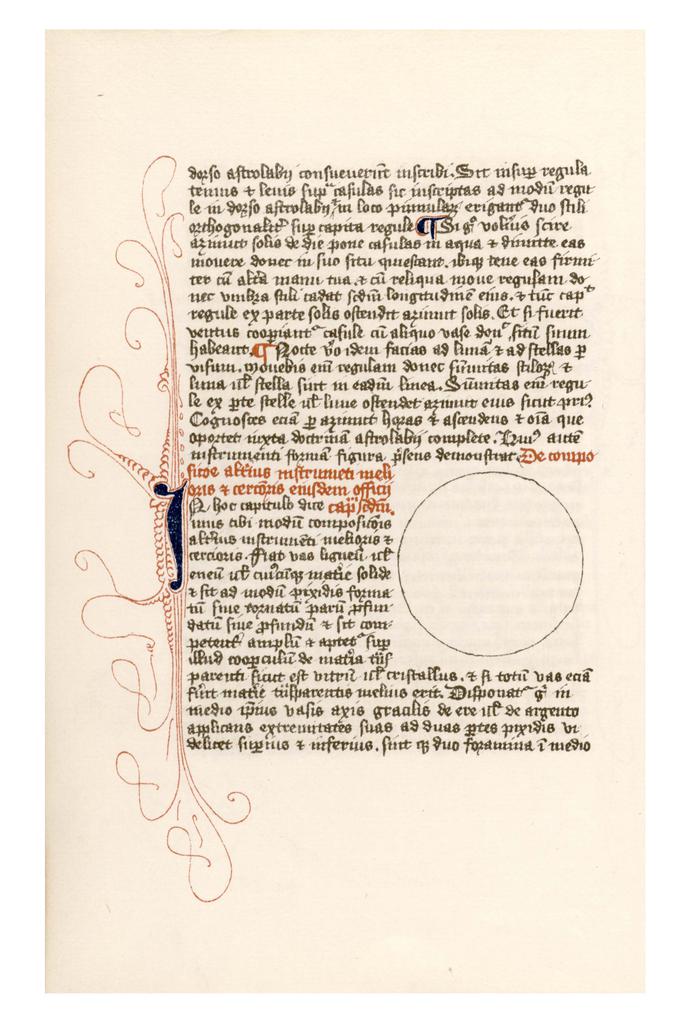 dorso astrolabij consueuerūt inscribi. Sit insup regula
tenuis & leuis sup casulas sic inscriptas ad modū regu
le in dorso astrolabij, in loco pinnularꝝ erigant duo stili
orthogonalit sup capita regule ¶ Si gͦ volūis scire
azimut solis de die pone casulas in aqua & dimitte eas
mouere donec in suo situ quiescant. ibiqꝫ tene eas firmi
ter cū altā manu tua. & cū reliqua moue regulam do
nec vmbra stili cadat scdm longitudinē eius. & tūc cap
regule ex parte solis ostendit azimut solis. Et si fuerit
ventus coopiant casule cū aliquo vase don sitū suum
habeant. ¶ Nocte vo idem facias ad lunā & ad stellas p
visum. mouebis enī regulam donec sūmitas stiloꝝ &
luna ul stella sint in eadm linea. Sūmitas enī regu
le ex pte stelle ul lune ostendet azimut eius sicut pri9
Cognosces eciā p azimut horas & ascendens & oīa que
oportet iuxta doctrinā astrolabij complete. Hui9 autē
instrumenti formā figura psens demonstrat. De compo
sitōe altius instrumēti meli
oris & certioris eiusdem officij
IN hoc capitulo dice capm scdm.
mus tibi modū compositiōis
altius instrumēti melioris &
certioris. Fiat vas ligneū ul
eneū ul cuiuscūqꝫ matie solide
& sit ad modū pixidis forma
tū siue tornatū parū pfun
datū siue pfundū & sit com
petent amplū & aptet sup
illud coopculū de matia tūs
parenti sicut est vitrū ul cristallus. & si totū vas eciā
fūit matie tūsparentis melius erit. Disponat gͦ in
medio ipius vasis axis gracilis de ere ul de argento
applicans extremitates suas ad duas ptes pixidis vi
delicet supius & inferius. sint qꝫ duo foramina ī medio